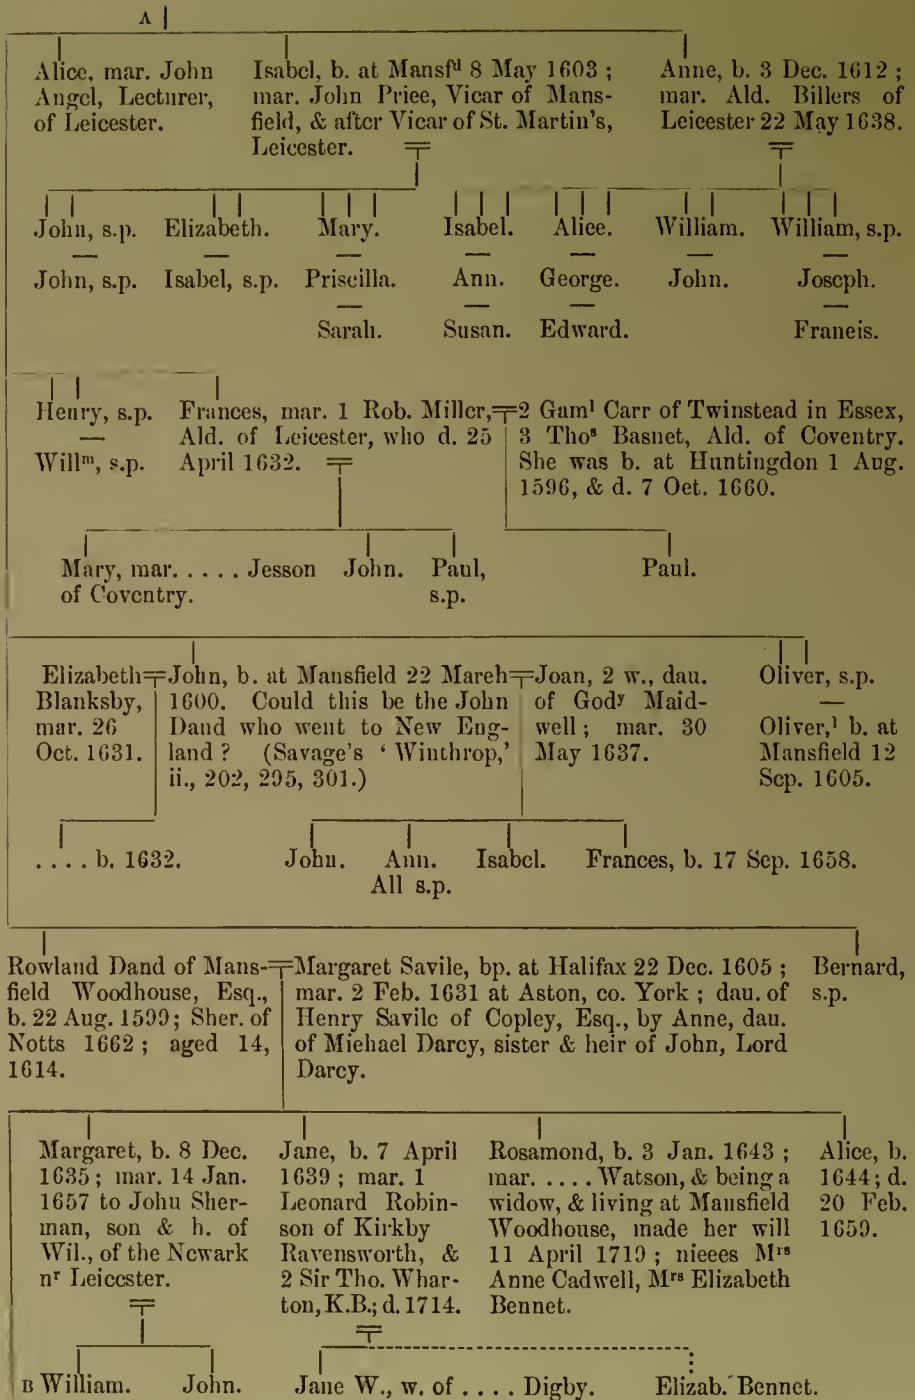 A
Alice, mar. John
Angel, Lecturer,
of Leicester.
Isabel, b. at Mansfᵈ 8 May 1603 ;
mar. John Price, Vicar of Mans-
field, & after Vicar of St. Martin's,
Leicester.
Anne, b. 3 Dec. 1612 ;
mar. Ald. Billers of
Leicester 22 May 1638.
John, s.p. Elizabeth. Mary. Isabel. Alice. William. William, s.p.
— — — — — — —
John, s.p. Isabel, s.p. Priscilla. Ann. George. John. Joseph.
— — — —
Sarah. Susan. Edward. Francis.
Henry, s.p.
—
Willᵐ, s.p.
Frances, mar. 1 Rob. Miller,
Ald. of Leicester, who d. 25
April 1632.
2 Gamˡ Carr of Twinstead in Essex,
3 Thoˢ Basnet, Ald. of Coventry.
She was b. at Huntingdon 1 Aug.
1596, & d. 7 Oct. 1660.
Mary, mar. . . . . Jesson
of Coventry.
John.
Paul,
s.p.
Paul.
Elizabeth
Blanksby,
mar. 26
Oct. 1631.
John, b. at Mansfield 22 March
1600. Could this be the John
Dand who went to New Eng-
land ? (Savage's ‘ Winthrop,’
ii., 202, 295, 301.)
Joan, 2 w., dau.
of Godʸ Maid-
well ; mar. 30
May 1637.
Oliver, s.p.
—
Oliver,¹ b. at
Mansfield 12
Sep. 1605.
. . . . b. 1632.
John. Ann. Isabel. Frances, b. 17 Sep. 1658.
All s.p.
Rowland Dand of Mans-
field Woodhouse, Esq.,
b. 22 Aug. 1599 ; Sher. of
Notts 1662 ; aged 14,
1614.
Margaret Savile, bp. at Halifax 22 Dec. 1605 ;
mar. 2 Feb. 1631 at Aston, co. York ; dau. of
Henry Savile of Copley, Esq., by Anne, dau.
of Michael Darcy, sister & heir of John, Lord
Darcy.
Bernard,
s.p.
Margaret, b. 8 Dec.
1635 ; mar. 14 Jan.
1657 to John Sher-
man, son & h. of
Wil., of the Newark
nʳ Leicester.
Jane, b. 7 April
1639 ; mar. 1
Leonard Robin-
son of Kirkby
Ravensworth, &
2 Sir Tho. Whar-
ton, K.B.; d. 1714.
Rosamond, b. 3 Jan. 1643 ;
mar. . . . . Watson, & being a
widow, & living at Mansfield
Woodhouse, made her will
11 April 1719 ; nieces Mʳˢ
Anne Cadwell, Mʳˢ Elizabeth
Bennet.
Alice, b.
1644 ; d.
20 Feb.
1659.
B William. John. Jane W., w. of . . . . Digby. Elizab. Bennet.